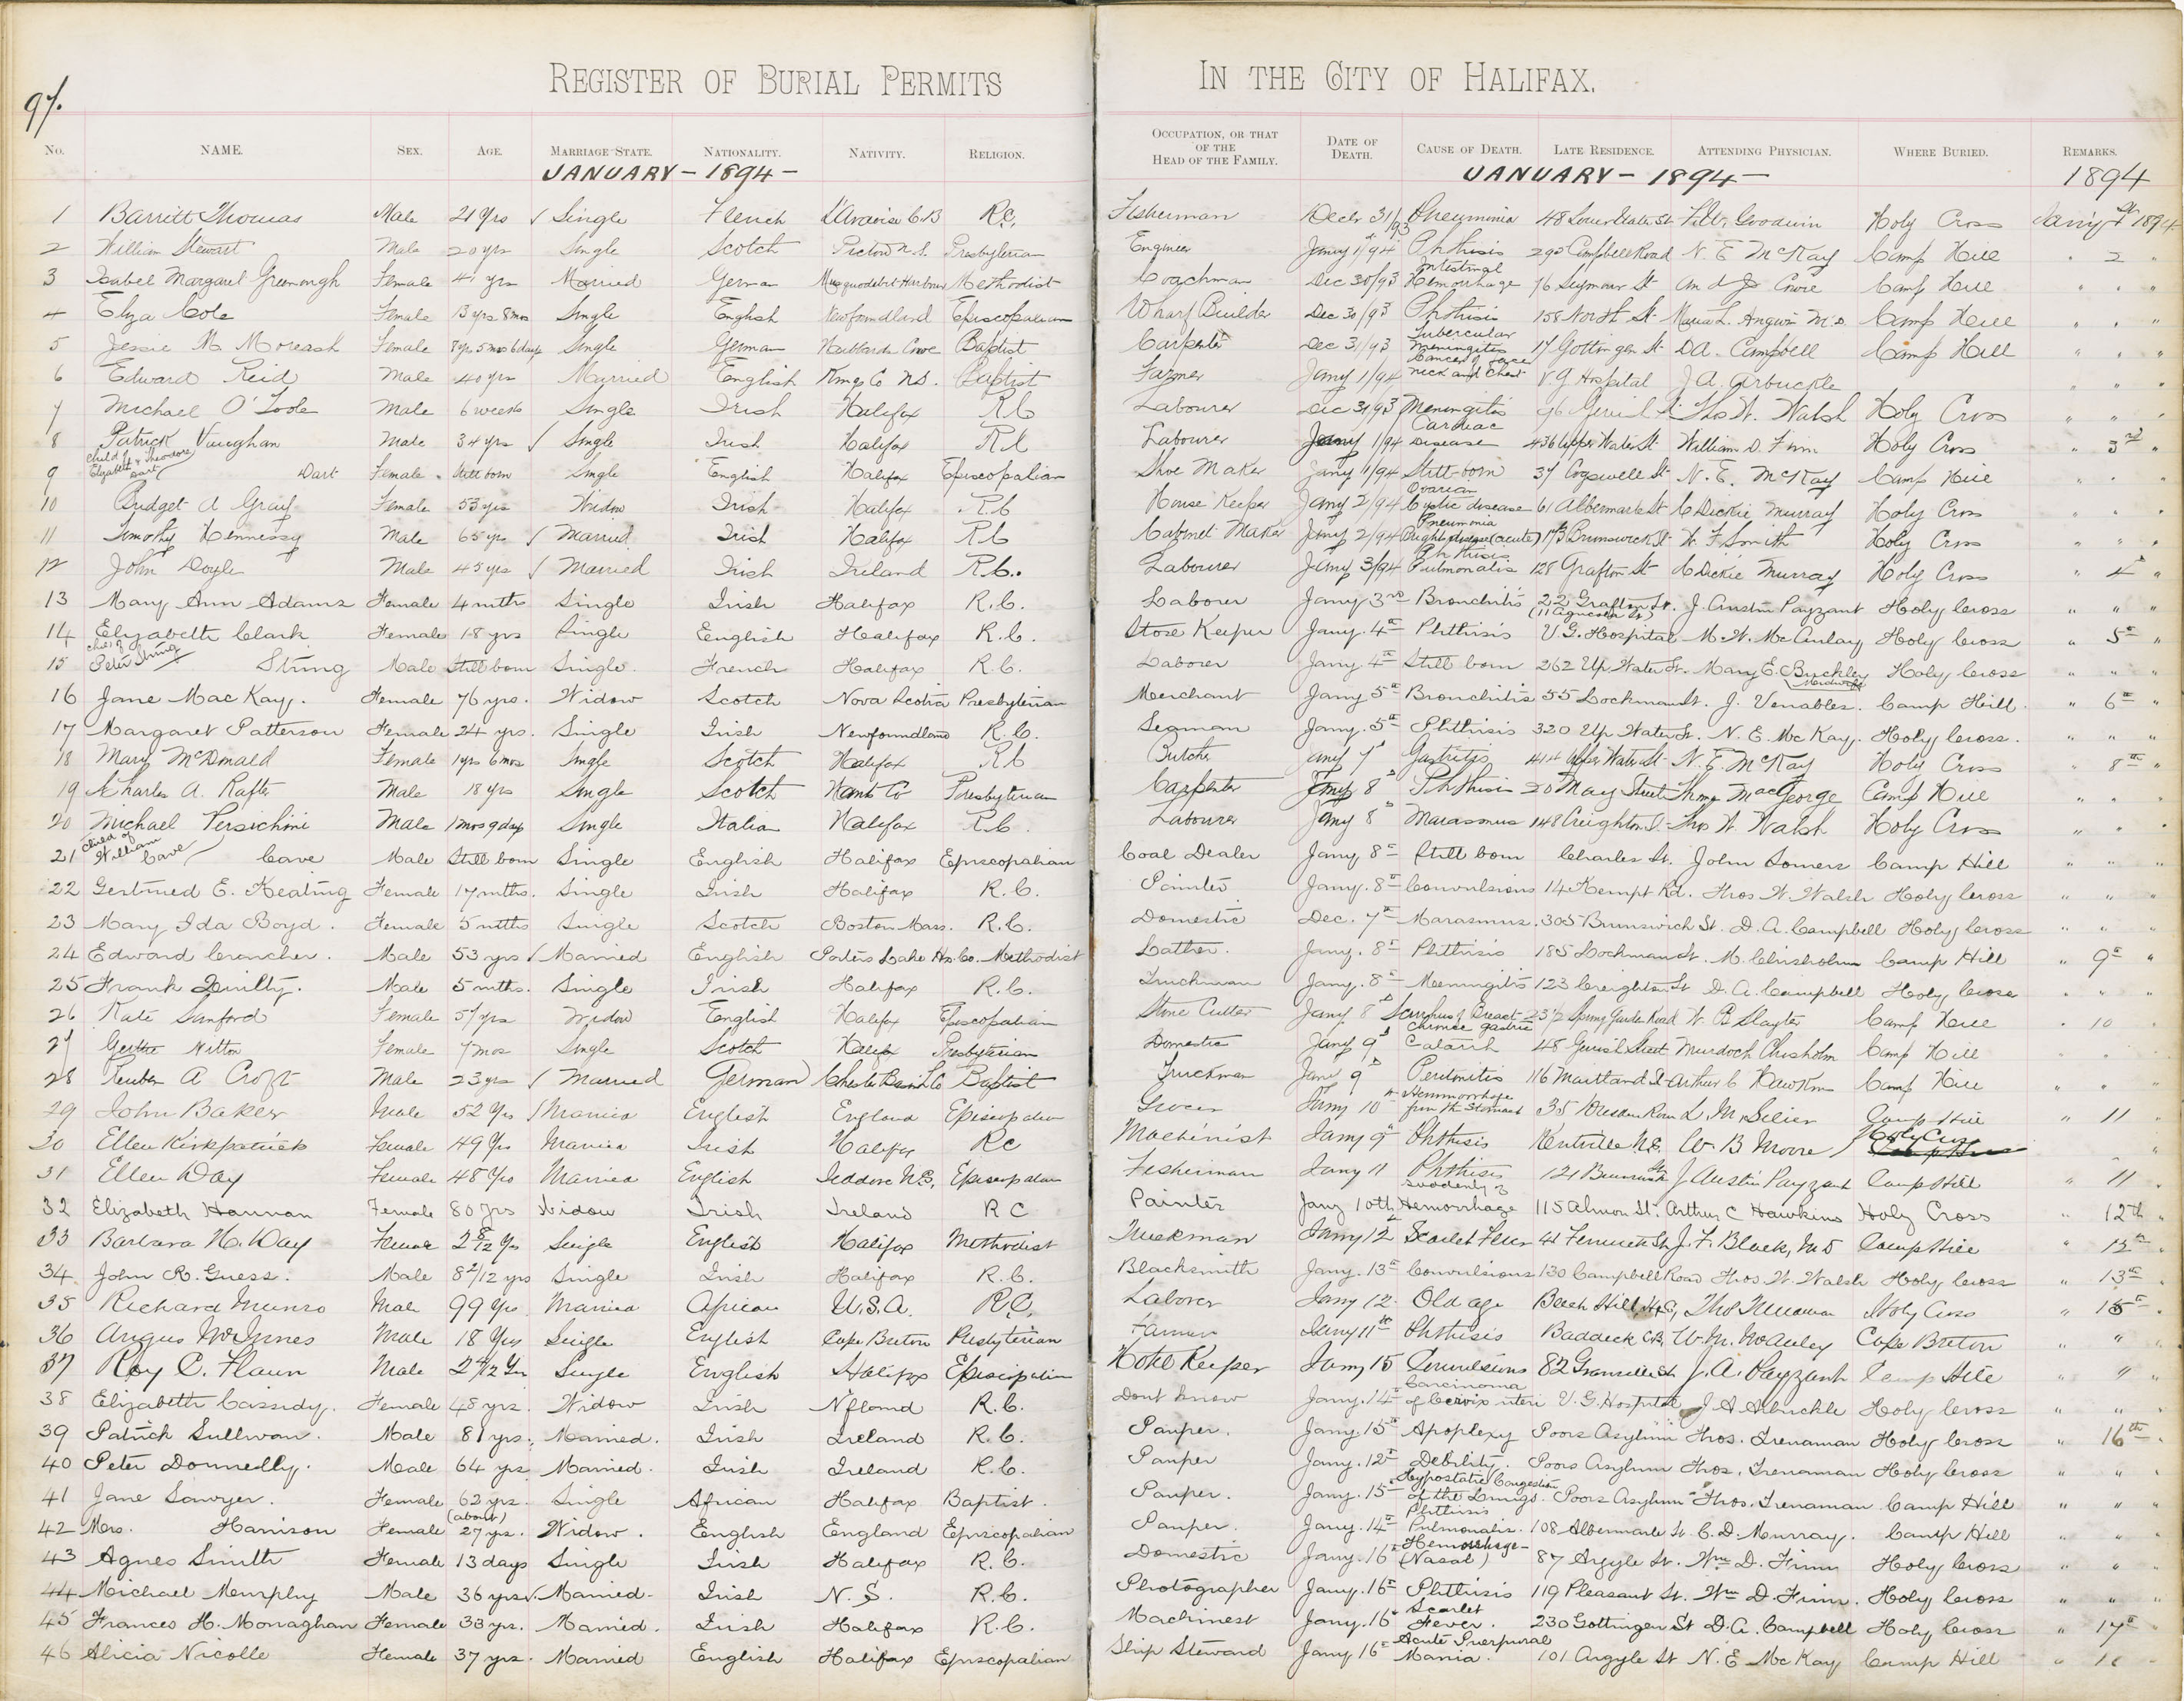 97.
REGISTER OF BURIAL PERMITS IN THE CITY OF HALIFAX.
NO. NAME. SEX. AGE. MARRIAGE-STATE. NATIONALITY. NATIVITY. RELIGION. OCCUPATION, OR THAT OF THE HEAD OF THE FAMILY. DATE OF DEATH. CAUSE OF DEATH. LATE RESIDENCE. ATTENDING PHYSICIAN. WHERE BURIED. REMARKS.
JANUARY - 1894 - JANUARY - 1894 - 1894
1 Barritt Thomas Male 21 Yrs ✓ Single French L'Ardoise C B R.C. Fisherman Decr 31/93 Pneumonia 48 Lower Water St Goodwin Holy Cross Jany 1st 1894
2 William Stewart Male 20 yrs Single Scotch Pictou N.S. Presbyterian Engineer Jany 1st/94 Phthisis 292 Campbell Road N. E McKay Camp Hill " 2 "
3 Isabel Margaret Greenough Female 41 yrs Married German Musquodobit Harbour Methodist Coachman Dec 30/93 Intestinal Hemorrhage 76 Seymour St And J Cowie Camp Hill " " "
4 Eliza Cole Female 13 yrs 8 mos Single English Newfoundland Episcopalian Wharf Builder Dec 30/93 Phthisis 158 North St Maria L. Angwin M.D. Camp Hill " " "
5 Jessie M. Moreash Female 8 yrs 5 mos 6 days Single German Hubbards Cove Baptist Carpenter Dec 31/93 Tubercular Meningitis 17 Gottingen St D A. Campbell Camp Hill " " "
6 Edward Reid Male 40 yrs Married English Kings Co N.S. Baptist Farmer Jany 1/94 Cancer of neck and chest V. G Hospital J A. Arbuckle " " "
7 Michael O'Toole Male 6 weeks Single Irish Halifax R C Labourer Dec 31/93 Meningitis Thos W. Walsh Holy Cross " " "
8 Patrick Vaughan Male 34 yrs ✓ Single Irish Halifax R C Labourer Jany 1/94 Cardiac Disease 436 Upper Water St William D. Finn Holy Cross " 3rd "
9 Child of Elizabeth & Theodore Dart Dart Female Still born Single English Halifax Episcopalian Shoe Maker Jany 1/94 Still-born 37 Cogswell St N. E. McKay Camp Hill " " "
10 Bridget A Gray Female 53 yrs Widow Irish Halifax R. C House Keeper Jany 2/94 Ovarian Cystic disease 61 Albermarle St C Dickie Murray Holy Cross " " "
11 Timothy Hennessy Male 65 yrs ✓ Married Irish Halifax R C Cabinet Maker Jany 2/94 Pneumonia Brights disease (acute) 173 Brunswick St W. F. Smith Holy Cross " " "
12 John Doyle Male 45 yrs ✓ Married Irish Ireland R. C. Labourer Jany 3/94 Phthisis Pulmonalis 128 Grafton St C Dickie Murray Holy Cross " 4th "
13 Mary Ann Adams Female 4 mths Single Irish Halifax R. C. Laborer Jany 3rd Bronchitis 22 Grafton St. J. Austin Payzant Holy Cross " " "
14 Elizabeth Clark Female 18 yrs Single English Halifax R. C. Store Keeper Jany. 4th Phthisis (11 Agricola St) V. G. Hospital M. W. McAulay Holy Cross " 5th "
15 Child of Peter String String Male Still born Single. French Halifax R. C. Laborer Jany 4th Still born 262 Up. Water St. Mary E. Buckley (Midwife) Holy Cross " " "
16 Jane MacKay. Female 76 yrs. Widow Scotch Nova Scotia Presbyterian Merchant Jany 5th Bronchitis 55 Lockman St. J. Venables. Camp Hill. " 6th "
17 Margaret Patterson Female 24 yrs. Single Irish Newfoundland R. C. Seaman Jany. 5th Phthisis 320 Up Water St. N. E. McKay. Holy Cross. " " "
18 Mary McDonald Female 1 yrs 6 mos Single Scotch Halifax R C Butcher Jany 7th Gastritis 414 Upper Water St N. E. McKay Holy Cross " 8th "
19 Charles A. Rafter Male 18 yrs Single Scotch Hants Co Presbyterian Carpenter Jany 8th Phthisis 20 May Street MacGeorge Camp Hill " " "
20 Michael Persichini Male 1 mos 9 days Single Italian Halifax R. C. Labourer Jany 8th Marasmus 148 Creighton St Thos W. Walsh Holy Cross " " "
21 Child of William Cave Cave Male Still born Single English Halifax Episcopalian Coal Dealer Jany 8th Still born Charles St. John Somers Camp Hill " " "
22 Gertrued E. Keating Female 17 mths. Single Irish Halifax R. C. Painter Jany. 8th Convulsions 14 Kempt Rd. Thos. W. Walsh Holy Cross " " "
23 Mary Ida Boyd. Female 5 mths Single Scotch Boston Mass. R. C. Domestic Dec. 7th Marasmus. 305 Brunswick St. D. A. Campbell Holy Cross " " "
24 Edward Croucher. Male 53 yrs ✓ Married English Porters Lake Hx. Co. Methodist Lather. Jany. 8th Phthisis 185 Lockman St. M. Chisholm Camp Hill " 9th "
25 Frank Quilty. Male 5 mths. Single Irish Halifax R. C. Truckman Jany. 8th Meningitis 123 Creighton St D. A. Campbell Holy Cross " " "
26 Kate Sanford Female 57 yrs Widow English Halifax Episcopalian Stone Cutter Jany 8th Scirrhus of Breast 23½ Spring Garden Road W. B Slayter Camp Hill " 10 "
27 Gertie Nitton Female 7 mos Single Scotch Halifax Presbyterian Domestic Jany 9th Chronic gastric Catarrh 48 Gerrish Street Murdoch Chisholm Camp Hill " " "
28 Reuben A Croft Male 23 yrs ✓ Married German Chester Basin Co Baptist Truckman Jany 9th Peritonitis 116 Maitland St Arthur C Hawkins Camp Hill " " "
29 John Baker Male 52 Yrs ✓ Married English England Episcopalian Grocer Jany 10th Hemmorrhage from the Stomach 35 Dresden Row L. M. Silver Camp Hill " 11 "
30 Ellen Kirkpatrick Female 49 Yrs Married Irish Halifax R C Machinist Jany 9th Phthisis Kentville N.S. W. B Moore Holy Cross " "
31 Ellen Day Female 48 Yrs Married English Jeddore N.S. Episcopalian Fisherman Jany 11 Phthisis 121 Brunswick St J Austin Payzant Camp Hill " 11 "
32 Elizabeth Hannan Female 80 yrs Widow Irish Ireland R C Painter Jany 10th Suddenly of Hemorrhage 115 Almon St. Arthur C Hawkins Holy Cross " 12th "
33 Barbara H. Day Female 2 8/12 Yrs Single English Halifax Methodist Truckman Jany 12th Scarlet Fever 41 Fenwick St J. F. Black, M D Camp Hill " 13th "
34 John R. Guess. Male 8 2/12 yrs Single Irish Halifax R. C. Blacksmith Jany. 13th Convulsions 130 Campbell Road Thos. W. Walsh Holy Cross " 13th "
35 Richard Munro Male 99 Yrs Married African U. S. A. R. C. Laborer Jany 12. Old age Beech Hill, Hx Co, Thos Trenaman Holy Cross " 15th "
36 Angus McInnes Male 18 Yrs Single English Cape Breton Presbyterian Farmer Jany 11th Phthisis Baddeck C.B. W. M. McAuley Cape Breton "
37 Roy C. Flawn Male 2 Yrs Single English Halifax Episcopalian Hotel Keeper Jany 15 Convulsions 82 Granville St J. A. Payzant Camp Hill "
38 Elizabeth Cassidy. Female 48 yrs. Widow Irish Nfland R. C. Dont know Jany. 14th Carcinoma of Cervix uteri V. G. Hospital J A Arbuckle Holy Cross " " "
39 Patrick Sullivan. Male 81 yrs. Married. Irish Ireland R. C. Pauper. Jany. 15th Apoplexy Poors Asylum Thos. Trenaman Holy Cross " 16th "
40 Peter Donnelly. Male 64 yrs Married. Irish Ireland R. C. Pauper Jany. 12th Debility. Poors Asylum Thos. Trenaman Holy Cross " " "
41 Jane Sawyer. Female 62 yrs. Single African Halifax Baptist. Pauper. Jany. 15th Hypostatic Congestion of the Lungs. Poors Asylum Thos. Trenaman Camp Hill " " "
42 Mrs. Harrison Female (about) 27 yrs. Widow. English England Episcopalian Pauper. Jany. 14th Phthisis Pulmonalis. 108 Albermarle St. C. D. Murray. Camp Hill " " "
43 Agnes Smith Female 13 days Single Irish Halifax R. C. Domestic Jany. 16th Hemorrhage- (Nasal) 87 Argyle St. Wm D. Finn Holy Cross " " "
44 Michael Murphy Male 36 yrs ✓. Married- Irish N. S. R. C. Photographer Jany. 16th Phthisis 119 Pleasant St. Wm D. Finn. Holy Cross " " "
45 Frances H. Monaghan Female 33 yrs. Married. Irish Halifax R. C. Machinest Jany. 16th Scarlet Fever. 230 Gottingen St D. A. Campbell Holy Cross " 17th "
46 Alicia Nicolle Female 37 yrs. Married English Halifax Episcopalian Ship Steward Jany 16th Acute Puerpural Mania. 101 Argyle St N. E McKay Camp Hill "